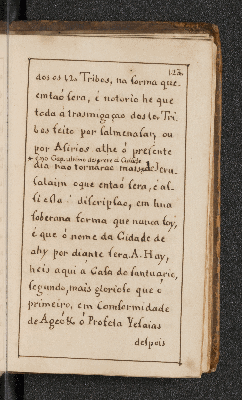 123.
dos os 12 Tribos, na forma que
emtaõ sera, é notorio he que
toda à trasmigaçaõ dos ter Tri
bos feito por salmenasar, ou
por Asirios athe ó prezente
dia naõ tornaraõ mais, à Jeru
salaim oque entaõ sera, é al
li esta discripsao, em hua
soberana forma que nunca foy,
é que ó nome da Cidade de
ahy por diante sera. A. Hay,
heis aqui à Casa do santuario,
segundo, mais glorioso que ó
primeiro, em Conformidade
de Ageô & ó Profeta Yesaias
despois